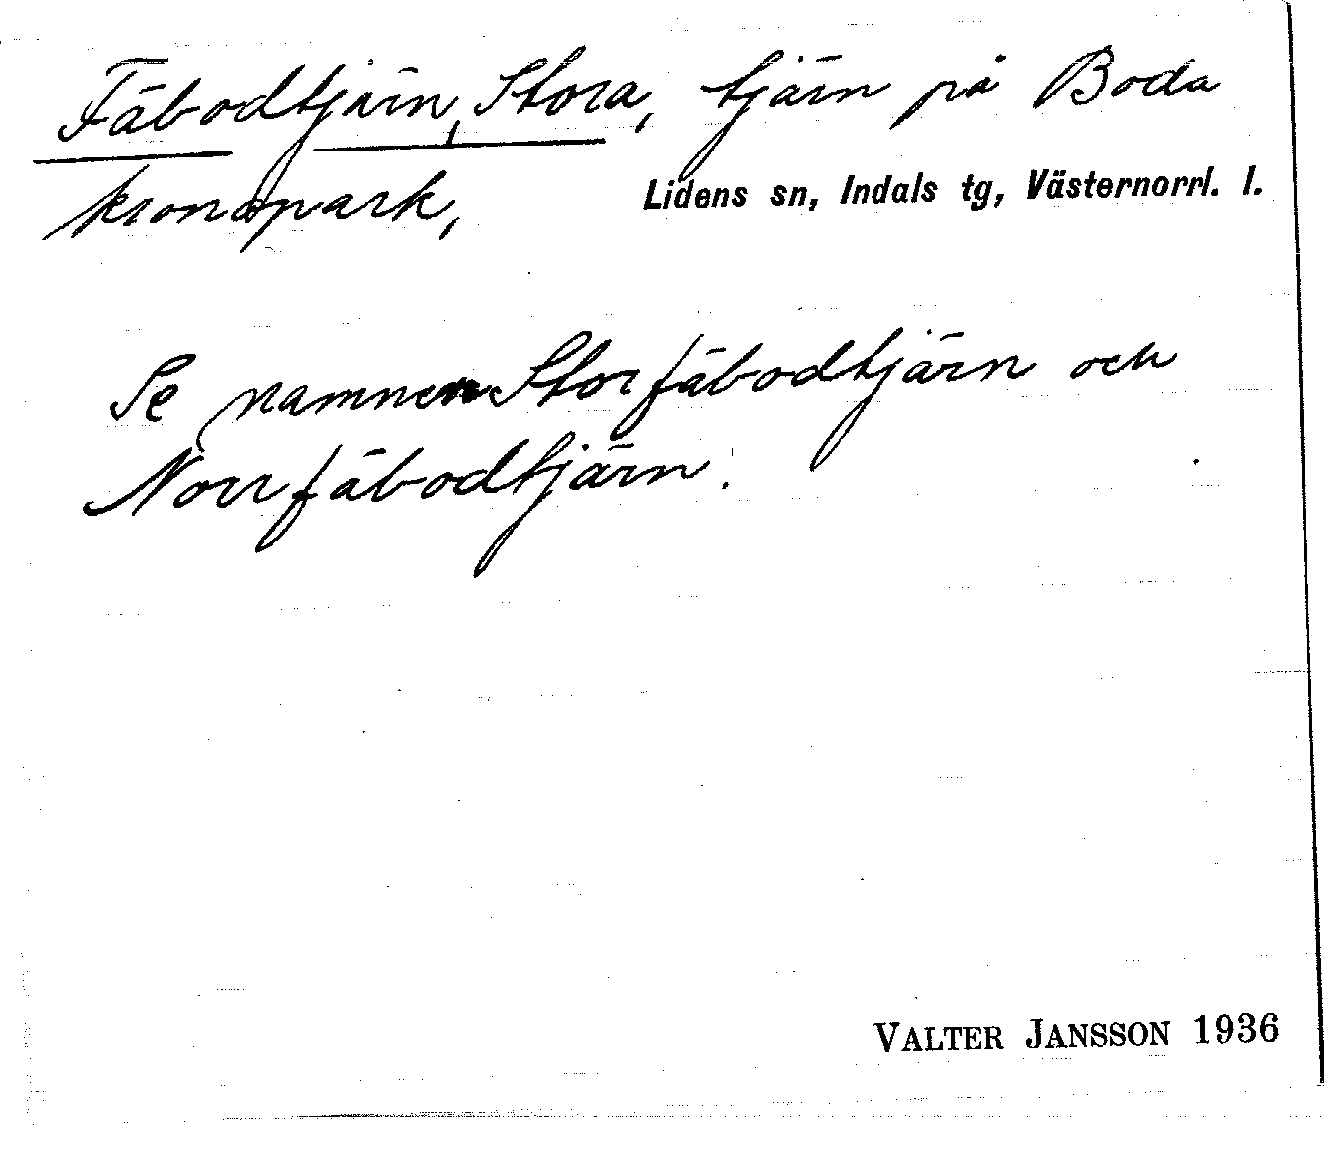 Fäbodtjärn, Stora, tjärn på Boda
kronopark,
Lidens sn, Indals tg, Västernorrl. l.
Se namnen Storfäbodtjärn och
Norrfäbodtjärn.
VALTER JANSSON 1936